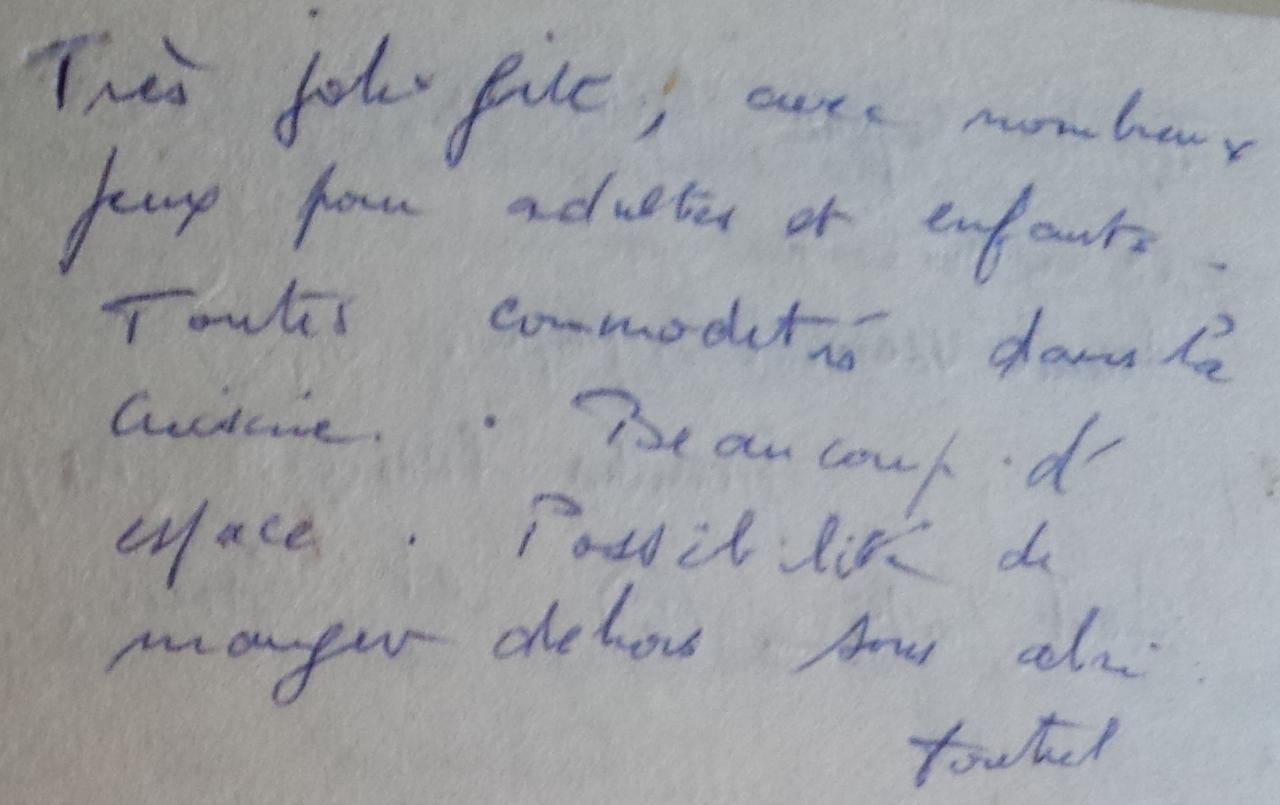 Très joli gîte, avec nombreux
jeux pour adultes et enfants.
Toutes commodités dans la
cuisine. Beaucoup d'
espace. Possibilité de
manger dehors sous abri